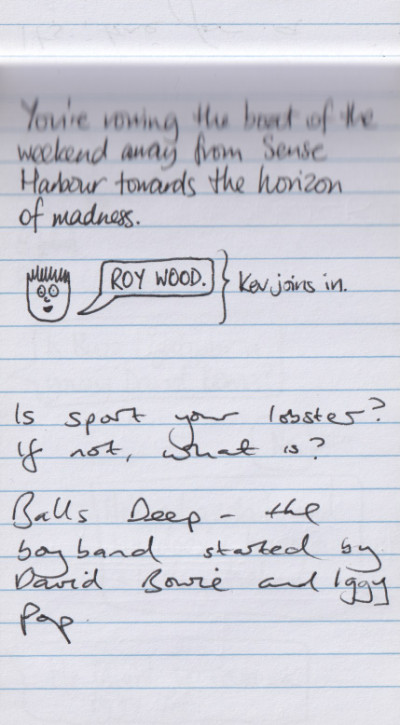 You're rowing the boat of the
weekend away from Sense
Harbour towards the horizon
of madness.
ROY WOOD. } Kev joins in.
Is sport your lobster?
If not, what is?
Balls Deep - the
boy band started by
David Bowie and Iggy
Pop